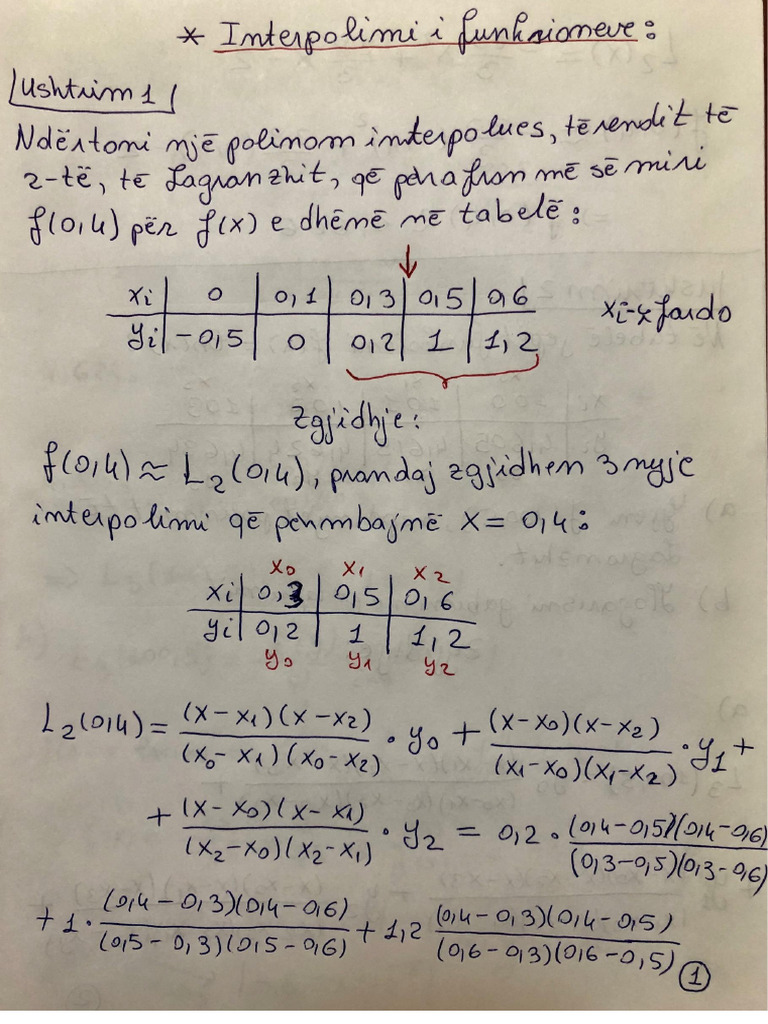 * Interpolimi i funksioneve:
Ushtrim 1
Ndërtoni një polinom interpolues, të rendit të
2-të, të Lagranzhit, që përafron më së miri
f(0,4) për f(x) e dhënë në tabelë:
xi | 0 | 0,1 | 0,3 | 0,5 | 0,6
yi | -0,5 | 0 | 0,2 | 1 | 1,2
xi-çfardo
Zgjidhje:
f(0,4) ≈ L₂(0,4), prandaj zgjidhen 3 nyje
interpolimi që përmbajnë x = 0,4:
x₀ x₁ x₂
xi | 0,3 | 0,5 | 0,6
yi | 0,2 | 1 | 1,2
y₀ y₁ y₂
L₂(0,4) = (x-x₁)(x-x₂)/(x₀-x₁)(x₀-x₂) · y₀ + (x-x₀)(x-x₂)/(x₁-x₀)(x₁-x₂) · y₁ +
+ (x-x₀)(x-x₁)/(x₂-x₀)(x₂-x₁) · y₂ = 0,2 · (0,4-0,5)(0,4-0,6)/(0,3-0,5)(0,3-0,6)
+ 1 · (0,4-0,3)(0,4-0,6)/(0,5-0,3)(0,5-0,6) + 1,2 (0,4-0,3)(0,4-0,5)/(0,6-0,3)(0,6-0,5)
1